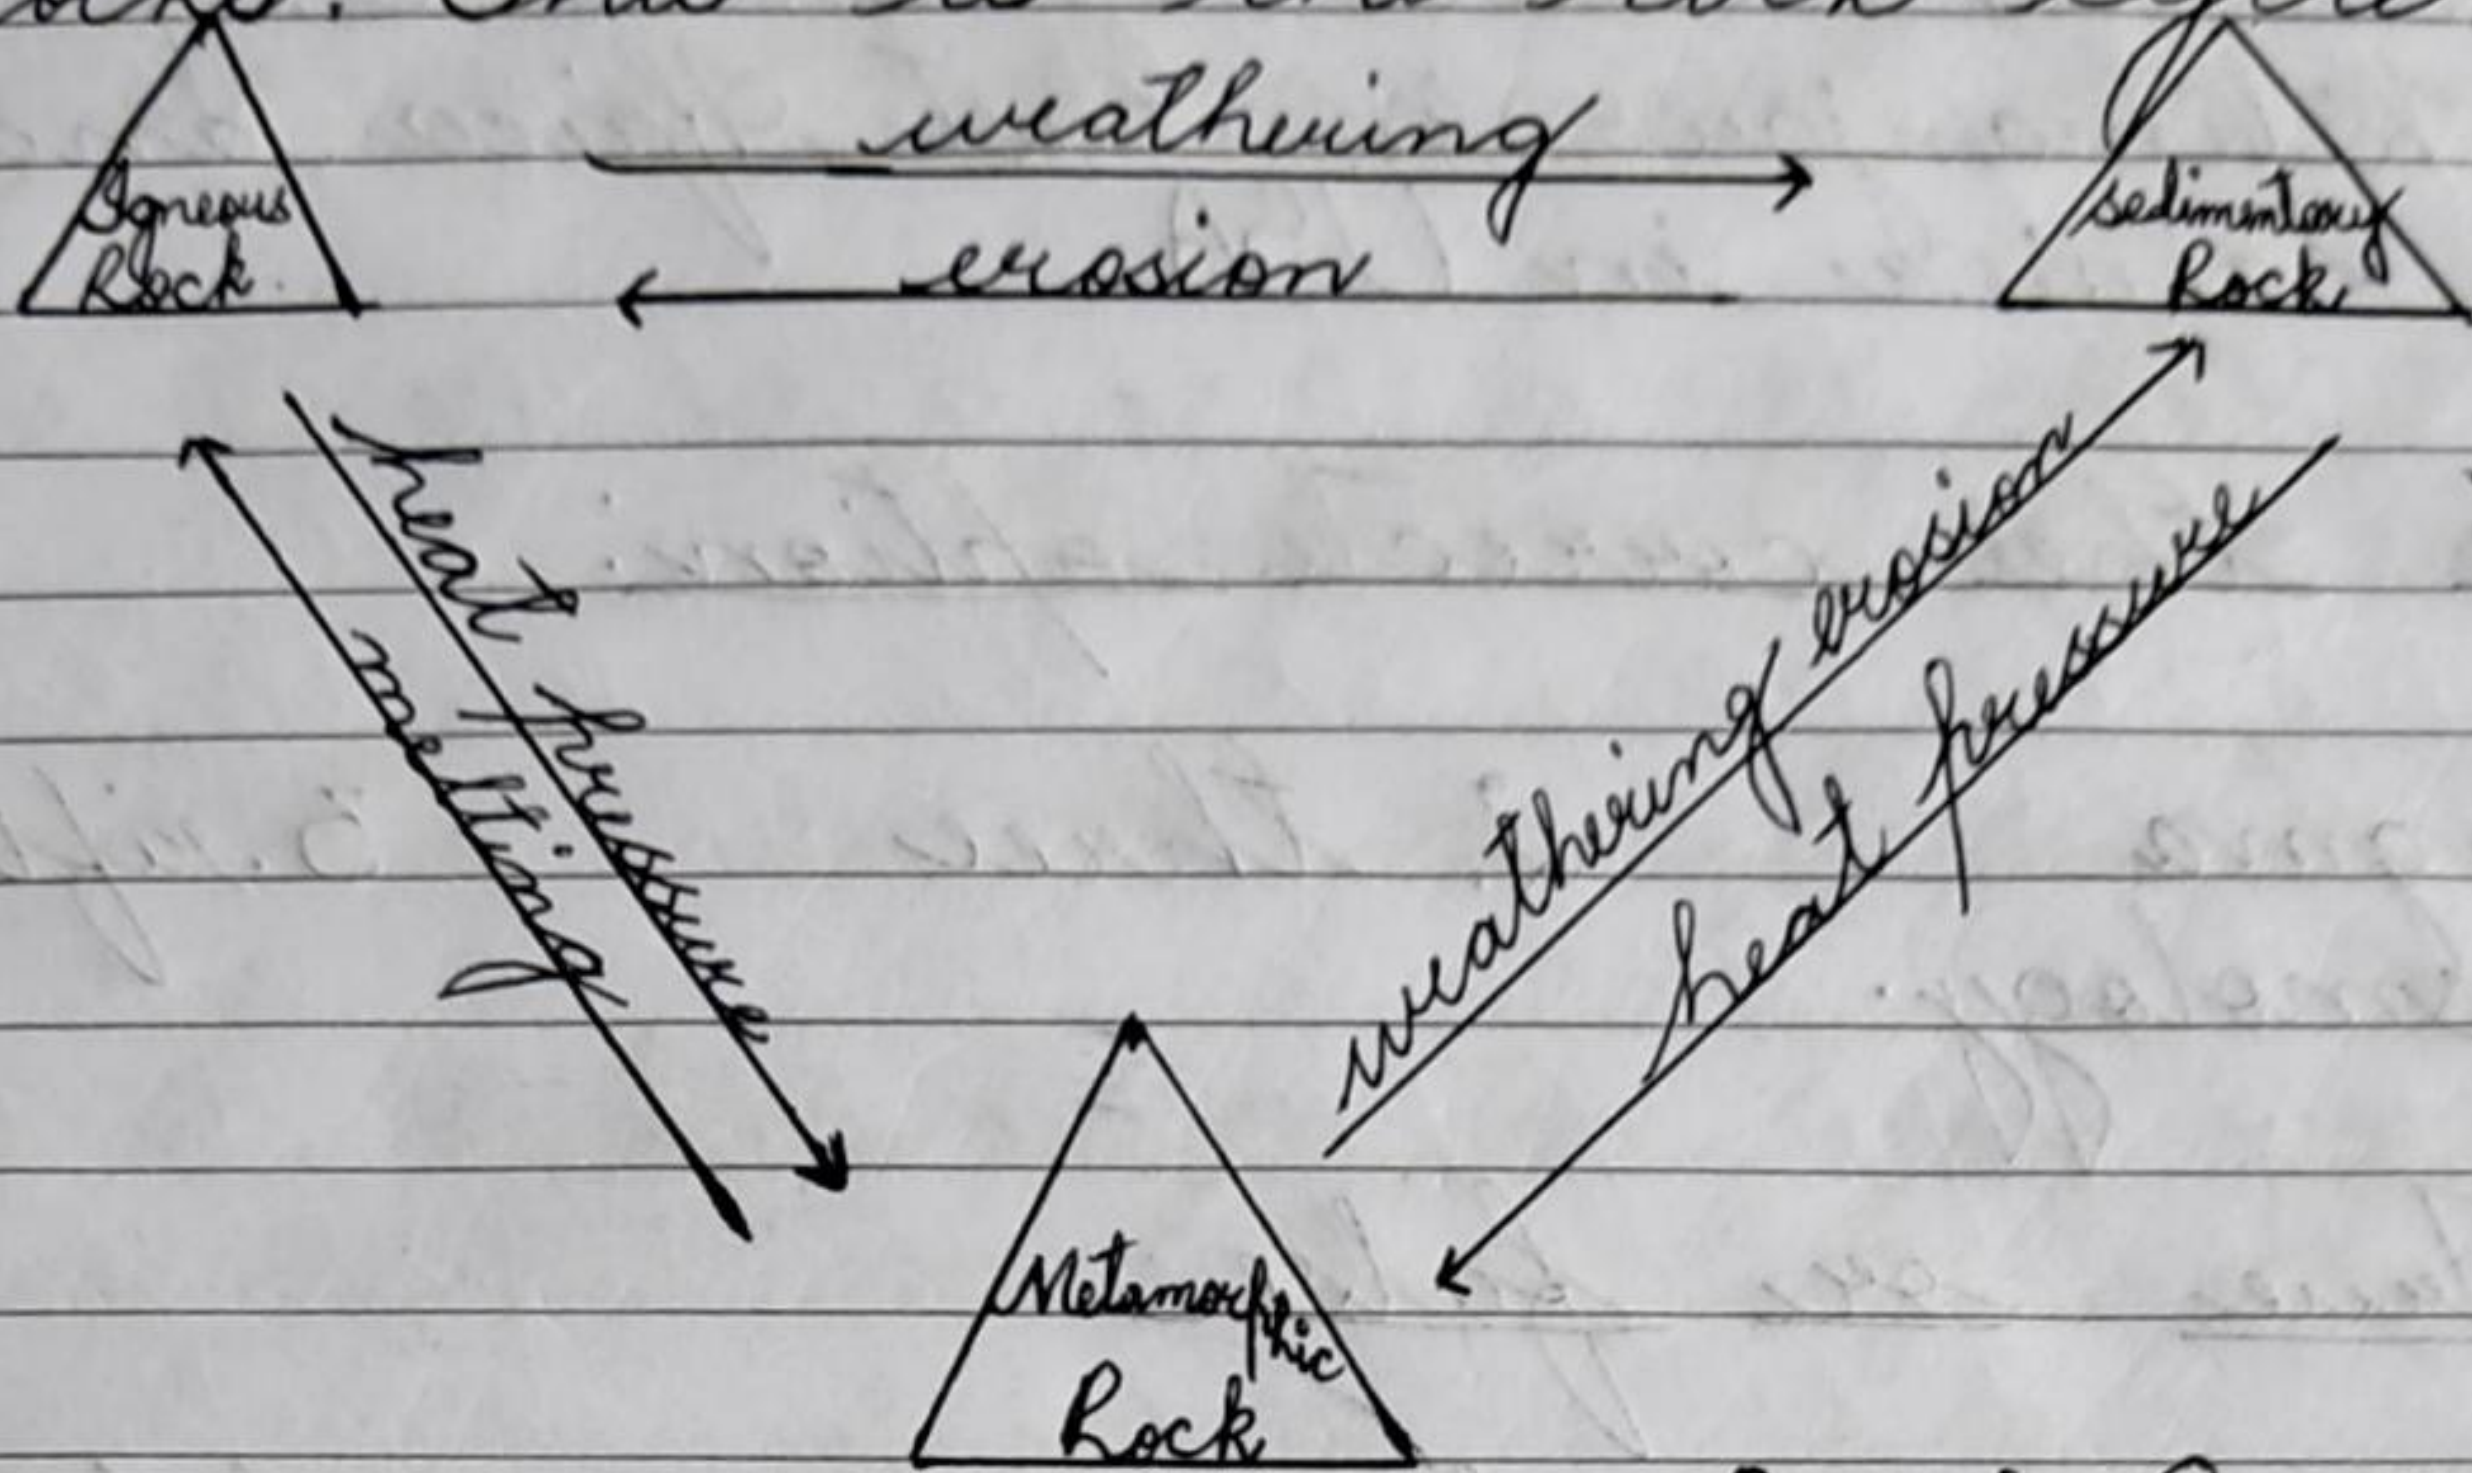 This is the rock
weathering
Igneous
Rock
sedimentary
Rock
erosion
heat pressure
melting
weathering erosion
heat pressure
Metamorphic
Rock